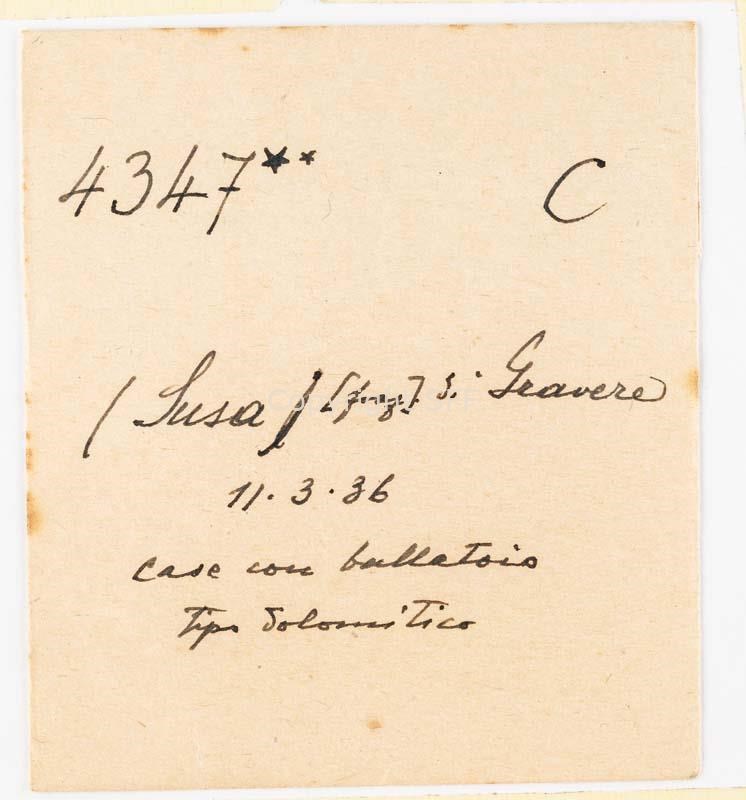 4347** C
(Susa) [fraz.] di Gravere
11.3.36
case con ballatoio
tipo dolomitico